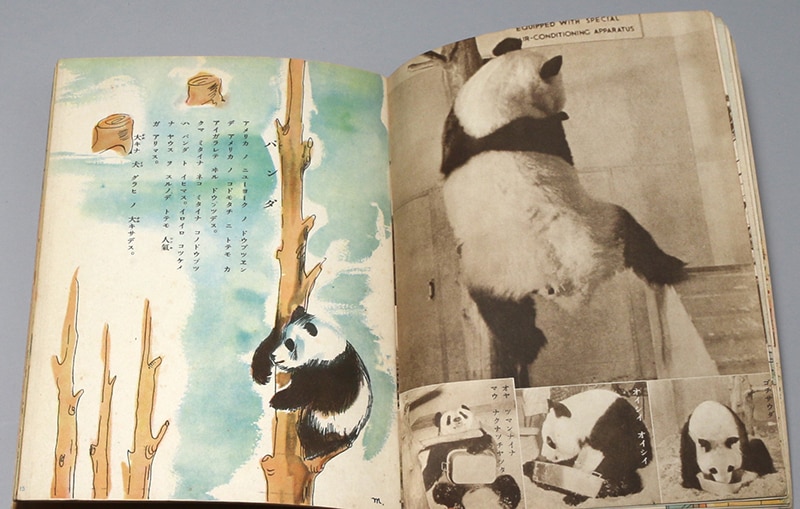 パンダ
アメリカ ノ ニューヨーク ノ ドウブツヱン
デ アメリカ ノ コドモタチ ニ トテモ カ
アイガラレテ ヰル ドウブツデス。
クマ ミタイナ ネコ ミタイナ コノドウブツ
ハ パンダ ト イヒマス。イロイロ
ナ ヤウス ヲ スルノデ トテモ 人氣
ガ アリマス。
大キナ 犬 グラヒ ノ 大キサデス。
M.
EQUIPPED WITH SPECIAL
IR-CONDITIONING APPARATUS
オヤ ツマンナイナ
マウ ナクナツチヤツタ
オイシイ オイシイ
ゴチサウダ